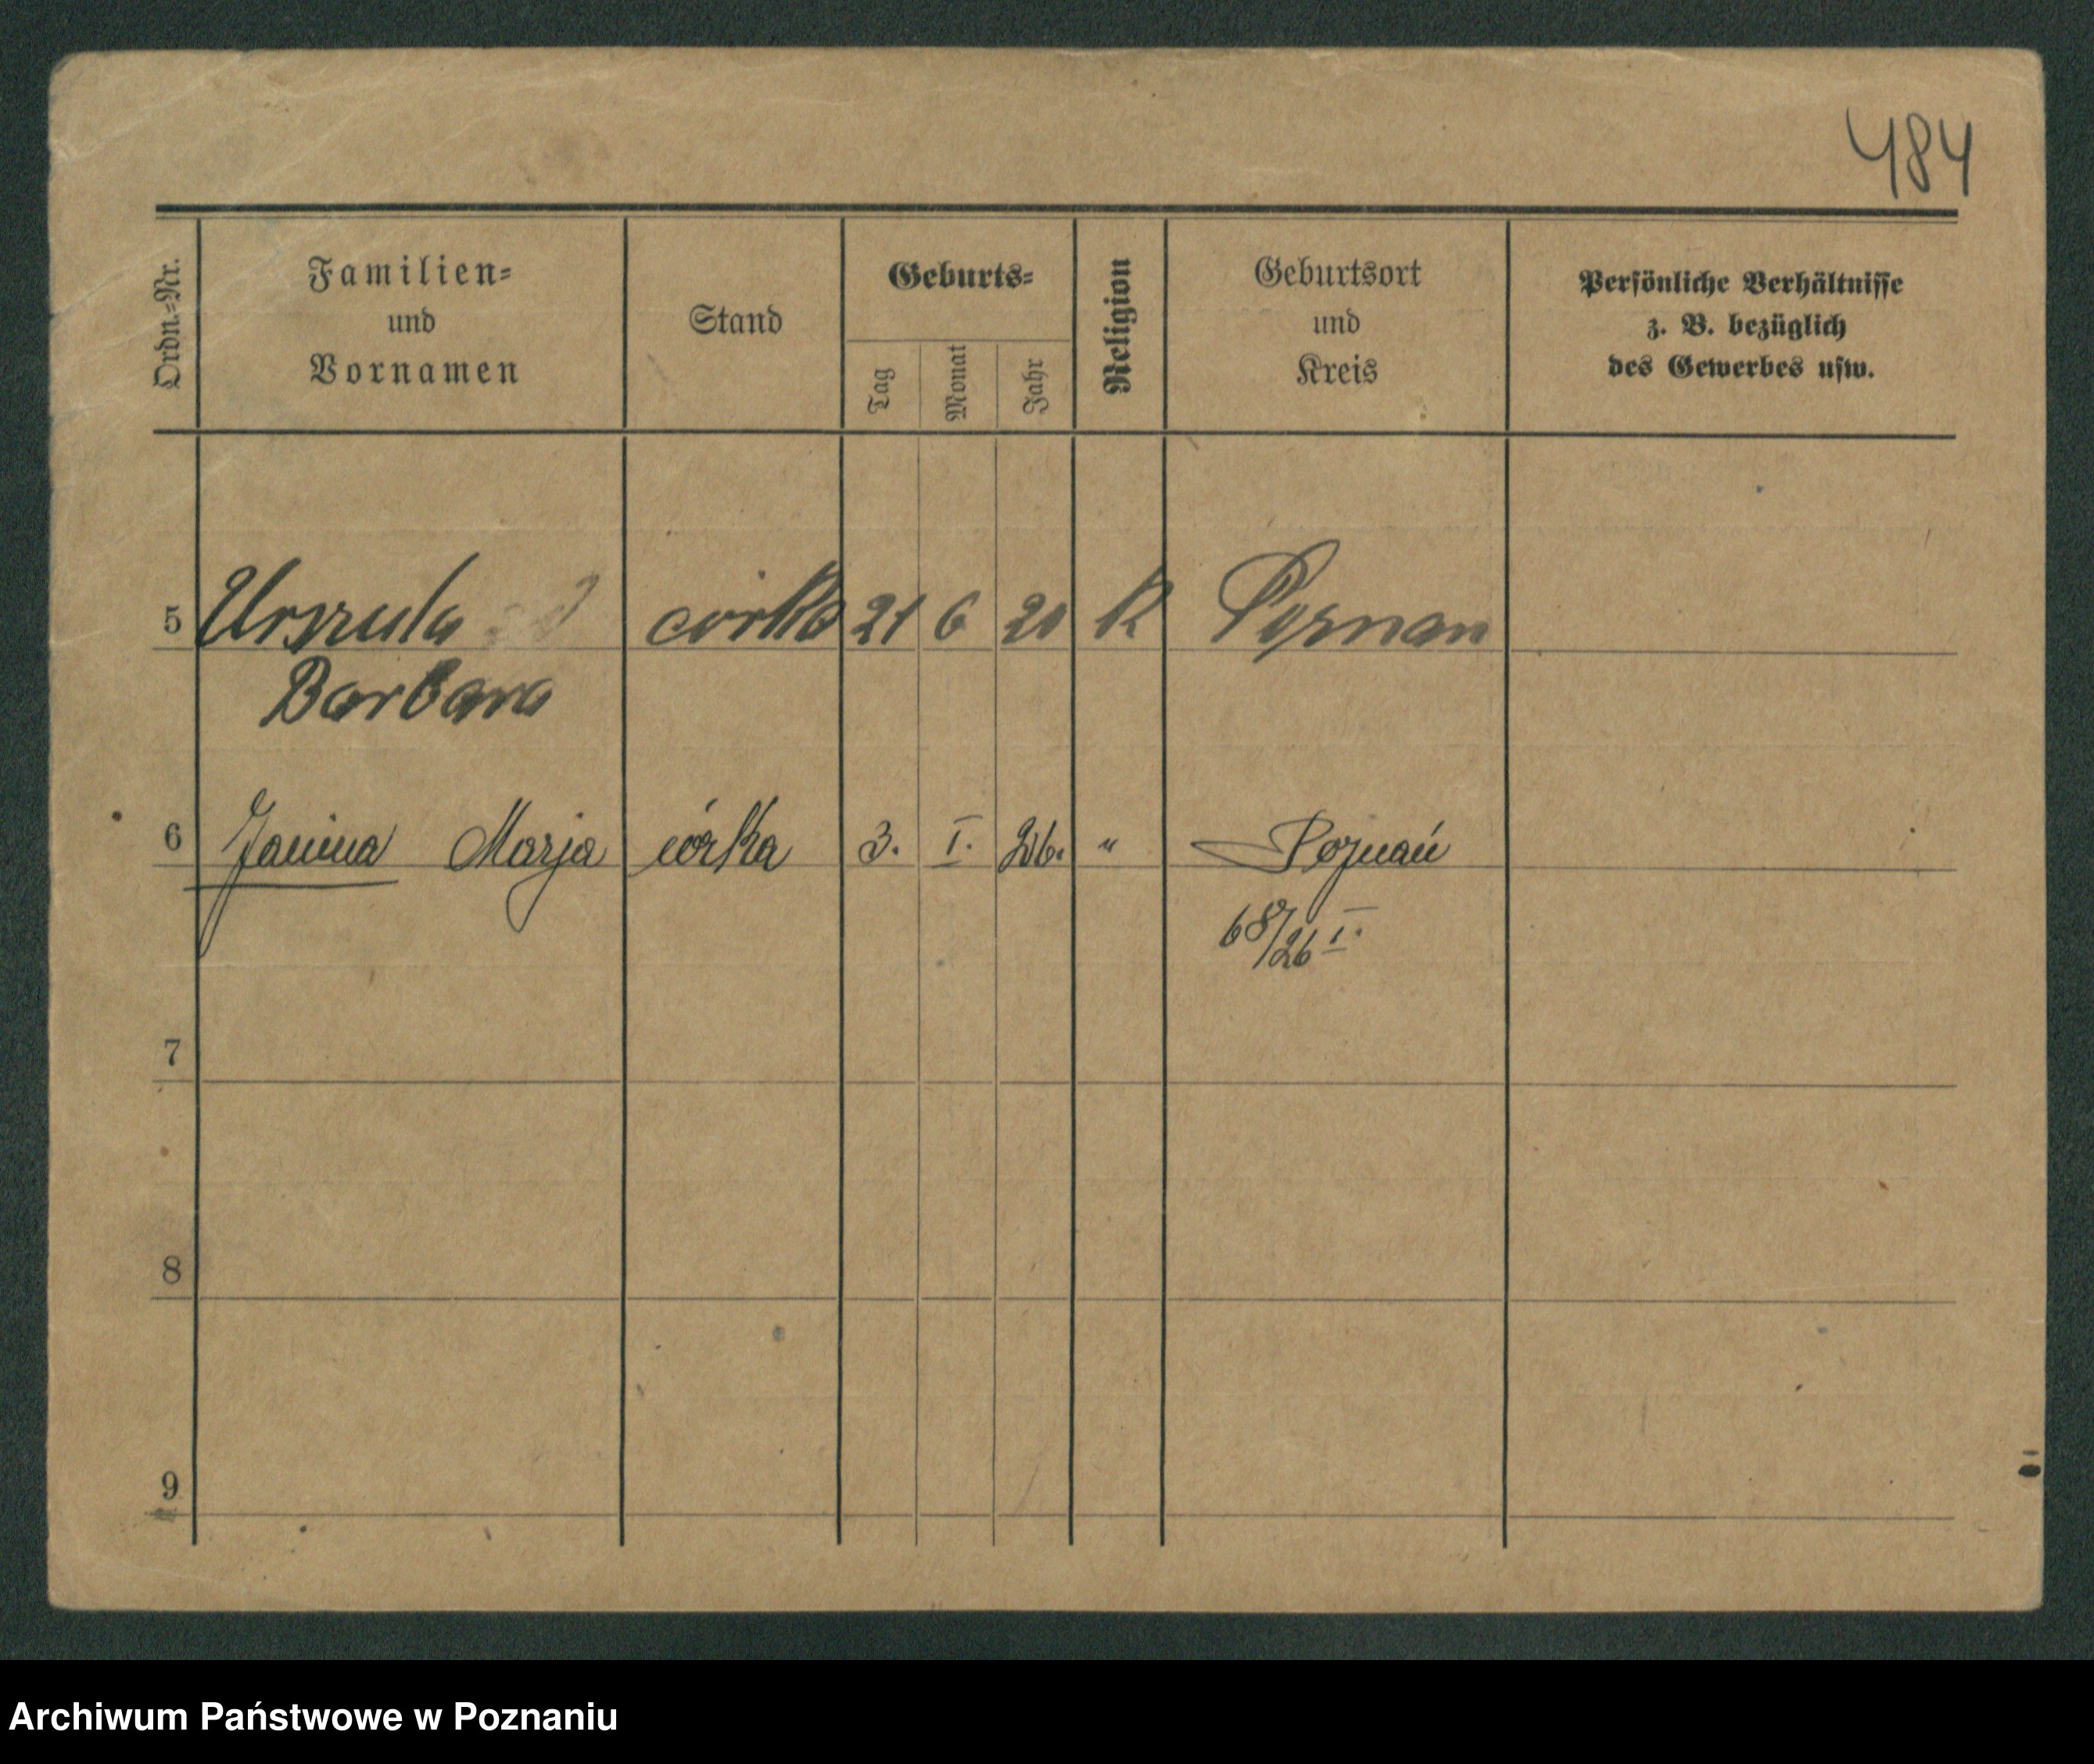 484
Ordn.-Nr. Familien- und Vornamen Stand Geburts- Tag Monat Jahr Religion Geburtsort und Kreis Persönliche Verhältnisse z. B. bezüglich des Gewerbes usw.
5 Urszula corka 21 6 20 K Poznan
Barbara
6 Janina Marja córka 3. I. 26. " Poznań
68/26 I.
7
8
9
Archiwum Państwowe w Poznaniu